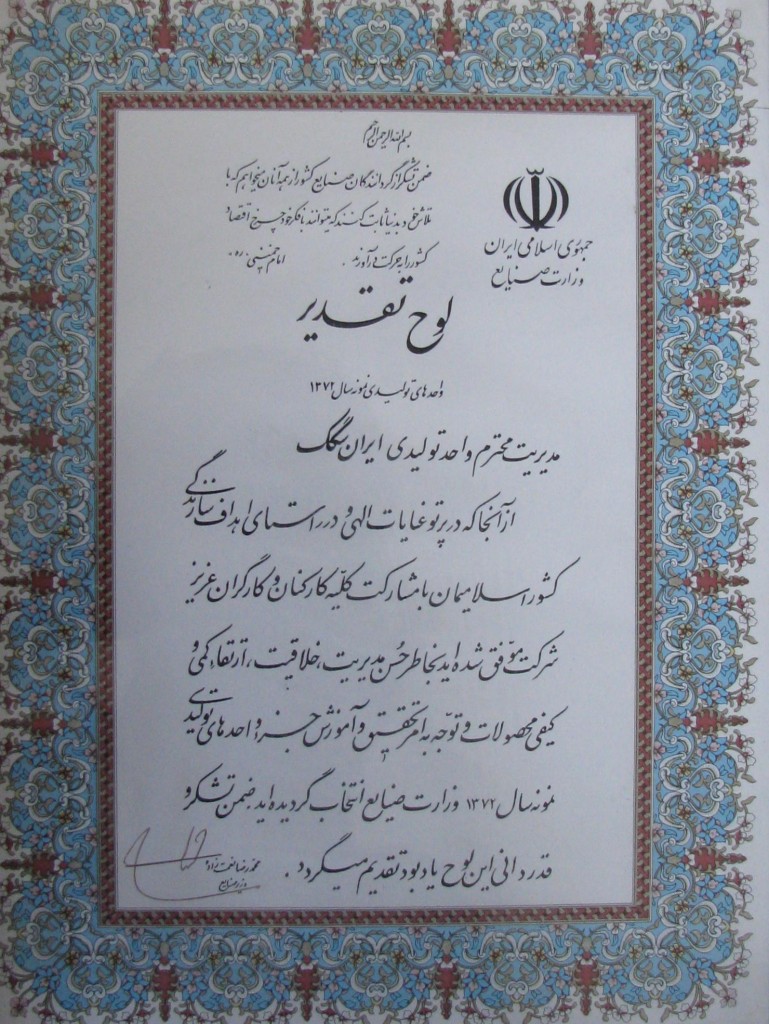 بسم الله الرحمن الرحیم
ضمن تشکر از گردانندگان صنایع کشور از همه آنان میخواهم که با
تلاش خود به دنیا ثابت کنند که میتوانند با فکر خود چرخ اقتصاد
کشور را به حرکت درآورند . امام خمینی ره
جمهوری اسلامی ایران
وزارت صنایع
لوح تقدیر
واحدهای تولیدی نمونه سال ۱۳۷۲
مدیریت محترم واحد تولیدی ایران سگک
از آنجا که در پرتو عنایات الهی و در راستای اهداف سازندگی
کشور اسلامیمان با مشارکت کلیّه کارکنان و کارگران عزیز
شرکت موّفق شده اید بخاطر حُسن مدیریت ، خلاقیت ، ارتقاء کمی و
کیفی محصولات و توّجه به امر تحقیق و آموزش جزء واحدهای تولیدی
نمونه سال ۱۳۷۲ وزارت صنایع انتخاب گردیده اید . ضمن تشکر و
قدردانی این لوح یادبود تقدیم میگردد .
محمدرضا نعمت زاده
وزیر صنایع